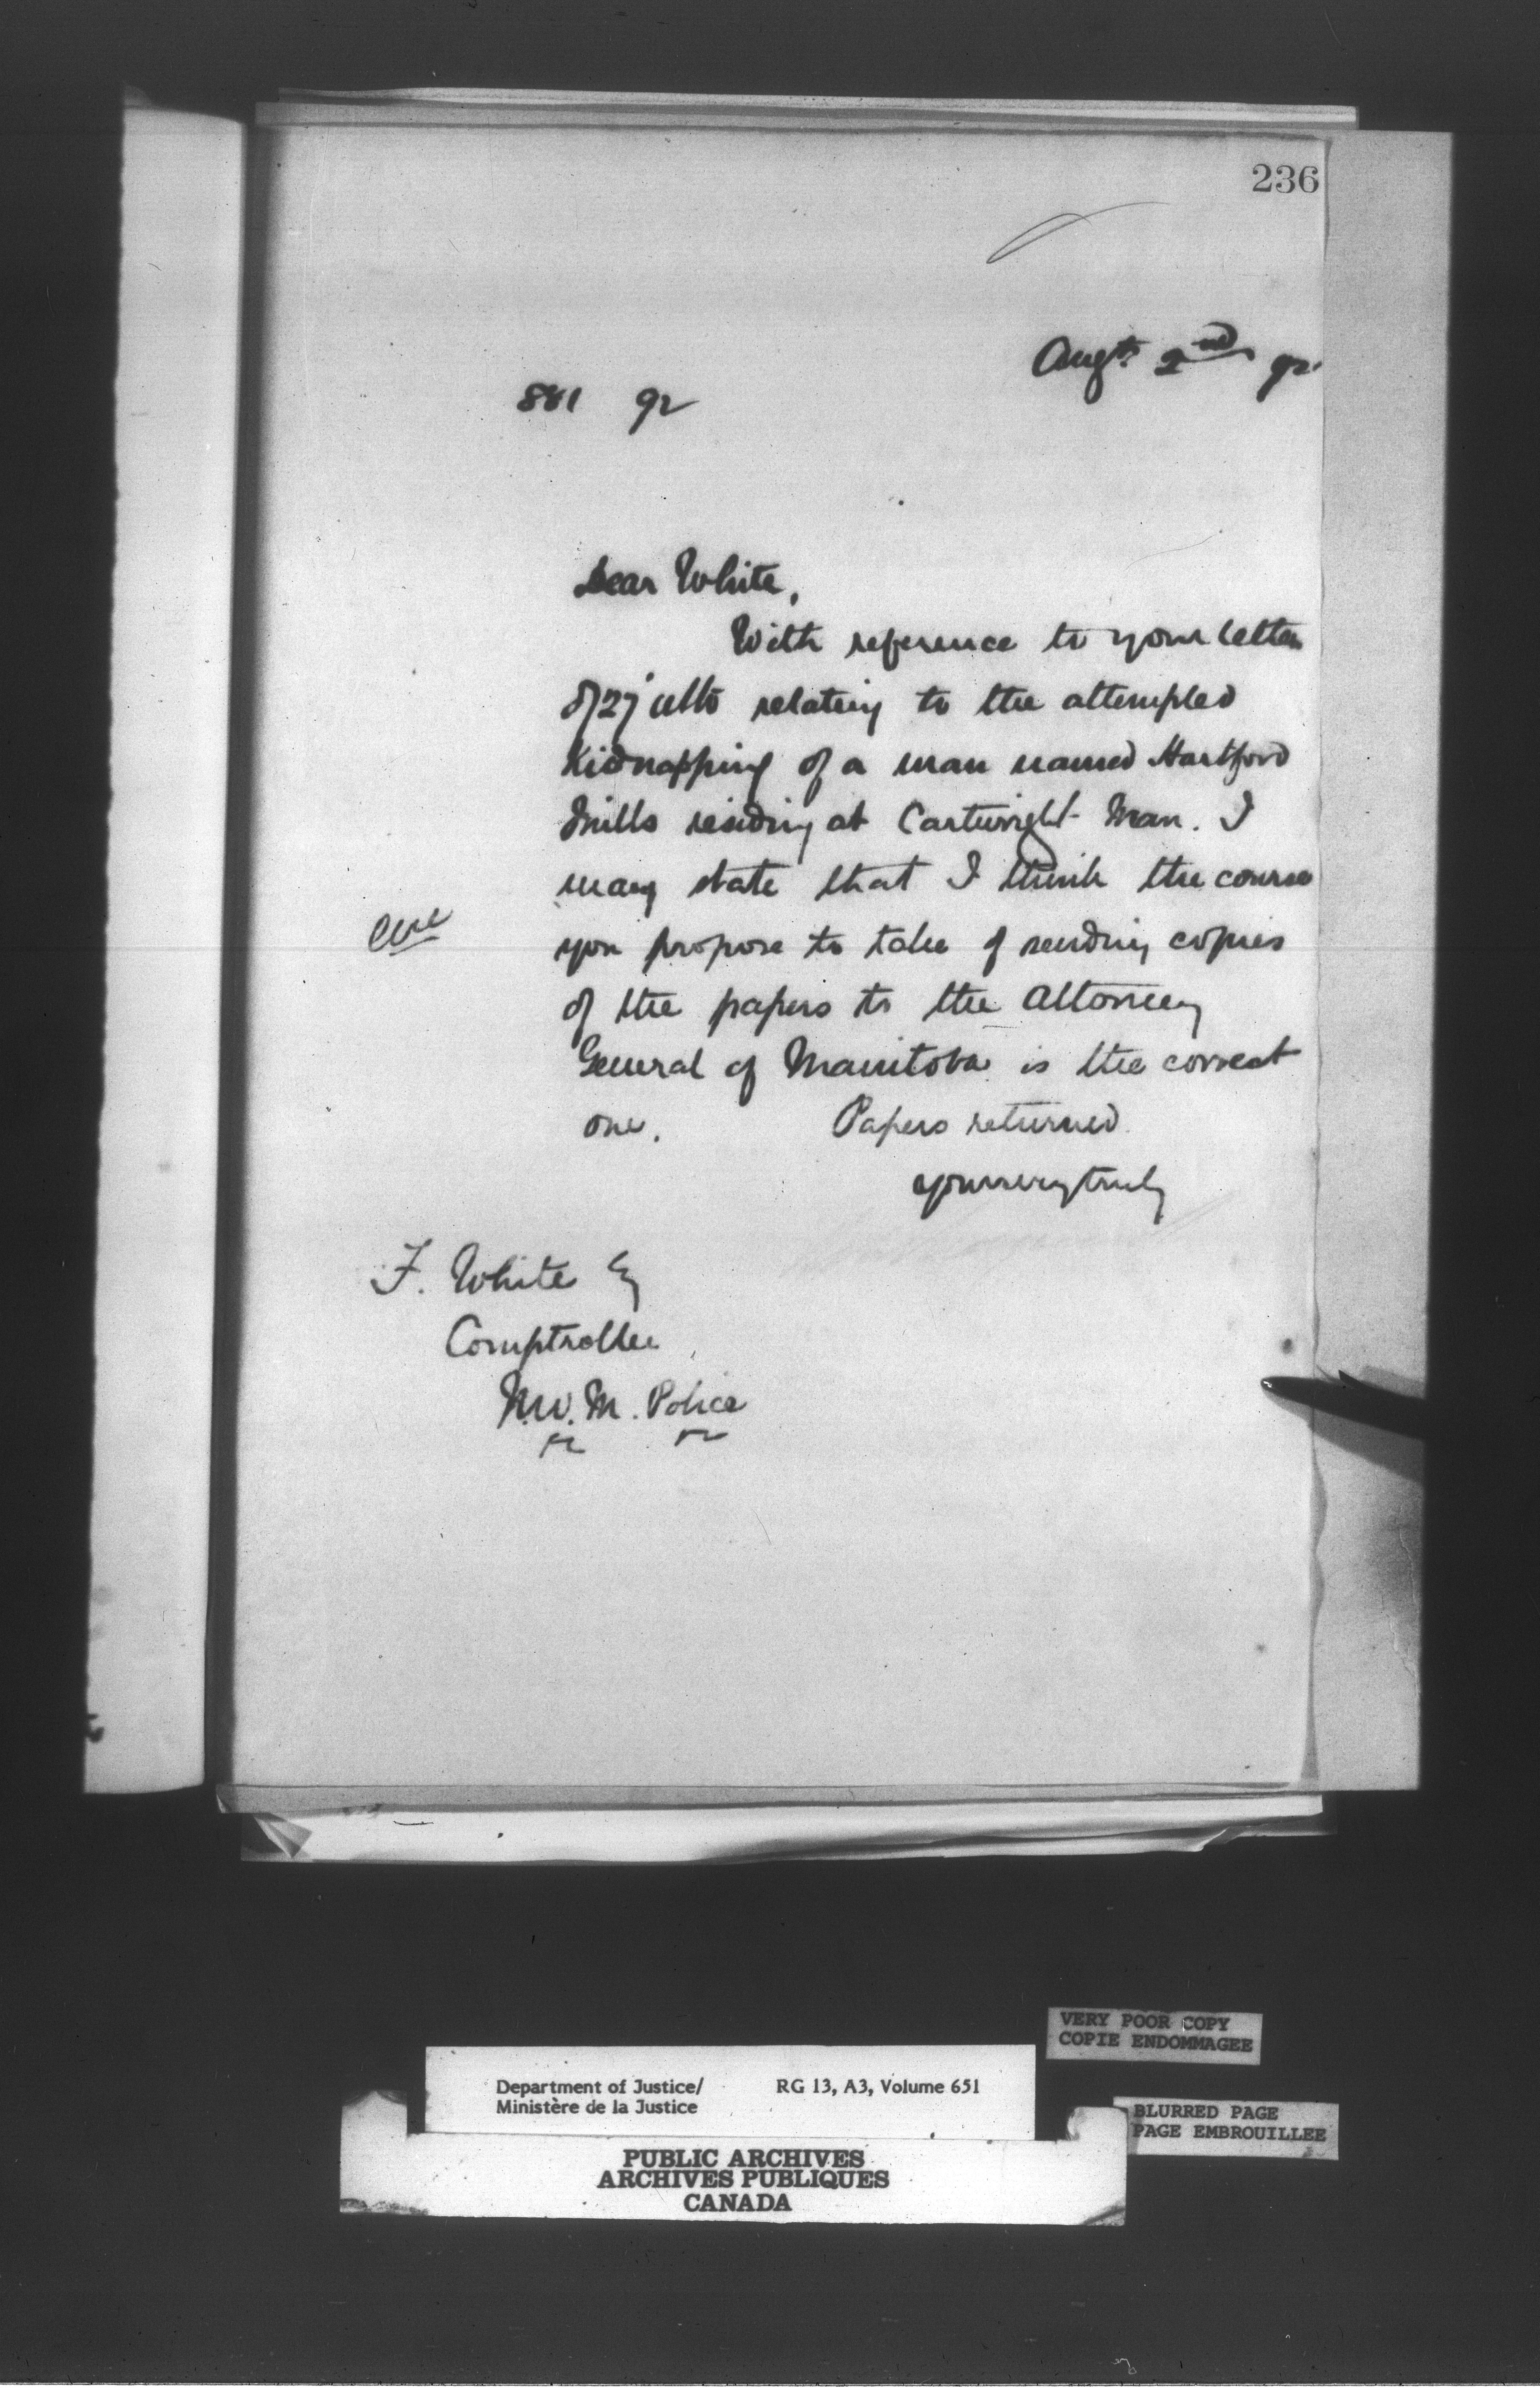 236
Augt. 2nd 92
881 92
Dear White,
With reference to your letter
of 27 ulto relating to the attempted
Kidnapping of a man named Hartford
Mills residing at Cartwright Man. I
may state that I think the course
you propose to take of sending copies
of the papers to the Attorney
General of Manitoba is the correct
one. Papers returned.
Yours very truly
F. White Esq
Comptroller
N.W.M. Police
VERY POOR COPY
COPIE ENDOMMAGEE
Department of Justice/ RG 13, A3, Volume 651
Ministère de la Justice
BLURRED PAGE
PAGE EMBROUILLEE
PUBLIC ARCHIVES
ARCHIVES PUBLIQUES
CANADA